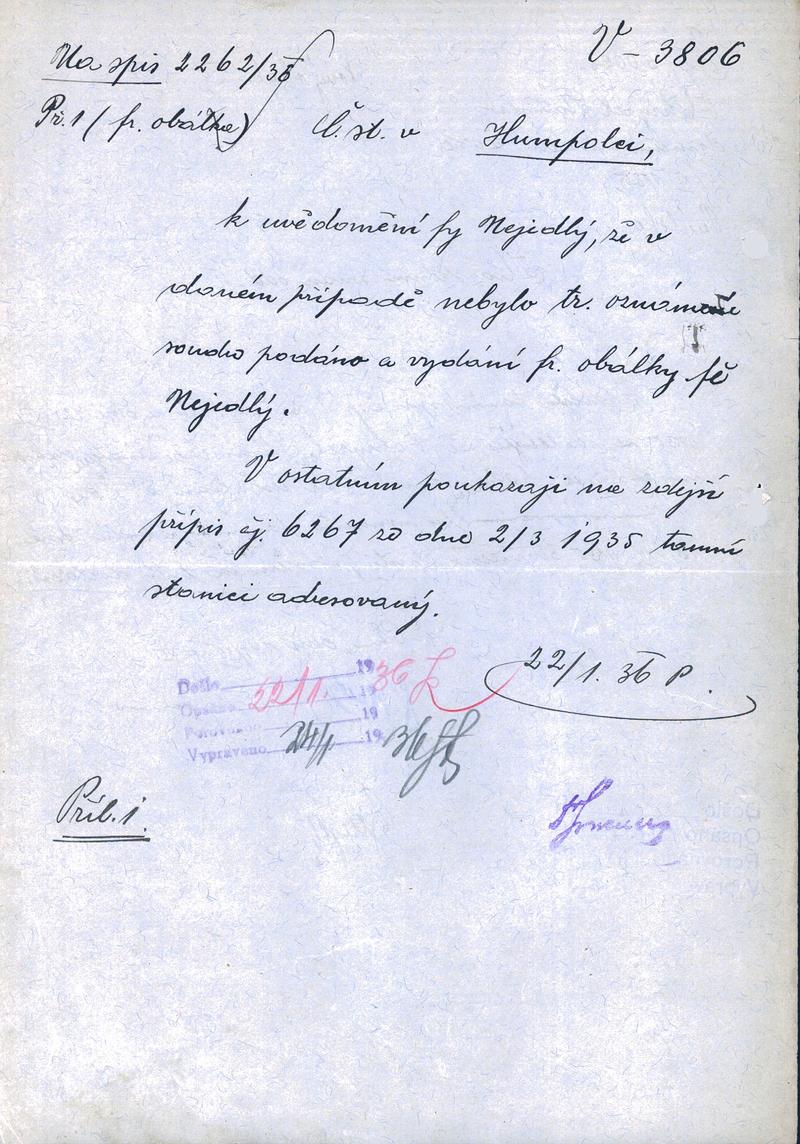 V – 3806
Na spis 2262/36
Př. 1 (fr. obálka)
Č. st. v Humpolci,
k uvědomění fy Nejedlý, že v
daném případě nebylo tr. oznámení
soudu podáno a vydání fr. obálky fě
Nejedlý.
V ostatním poukazuji na zdejší
přípis čj. 6267 ze dne 2/3 1935 tamní
stanici adresovaný.
22/1. 36 P.
Došlo 19
Opsáno 22/1. 1936
Porovnáno 19
Vypraveno 24/1 1936
Příl. 1.